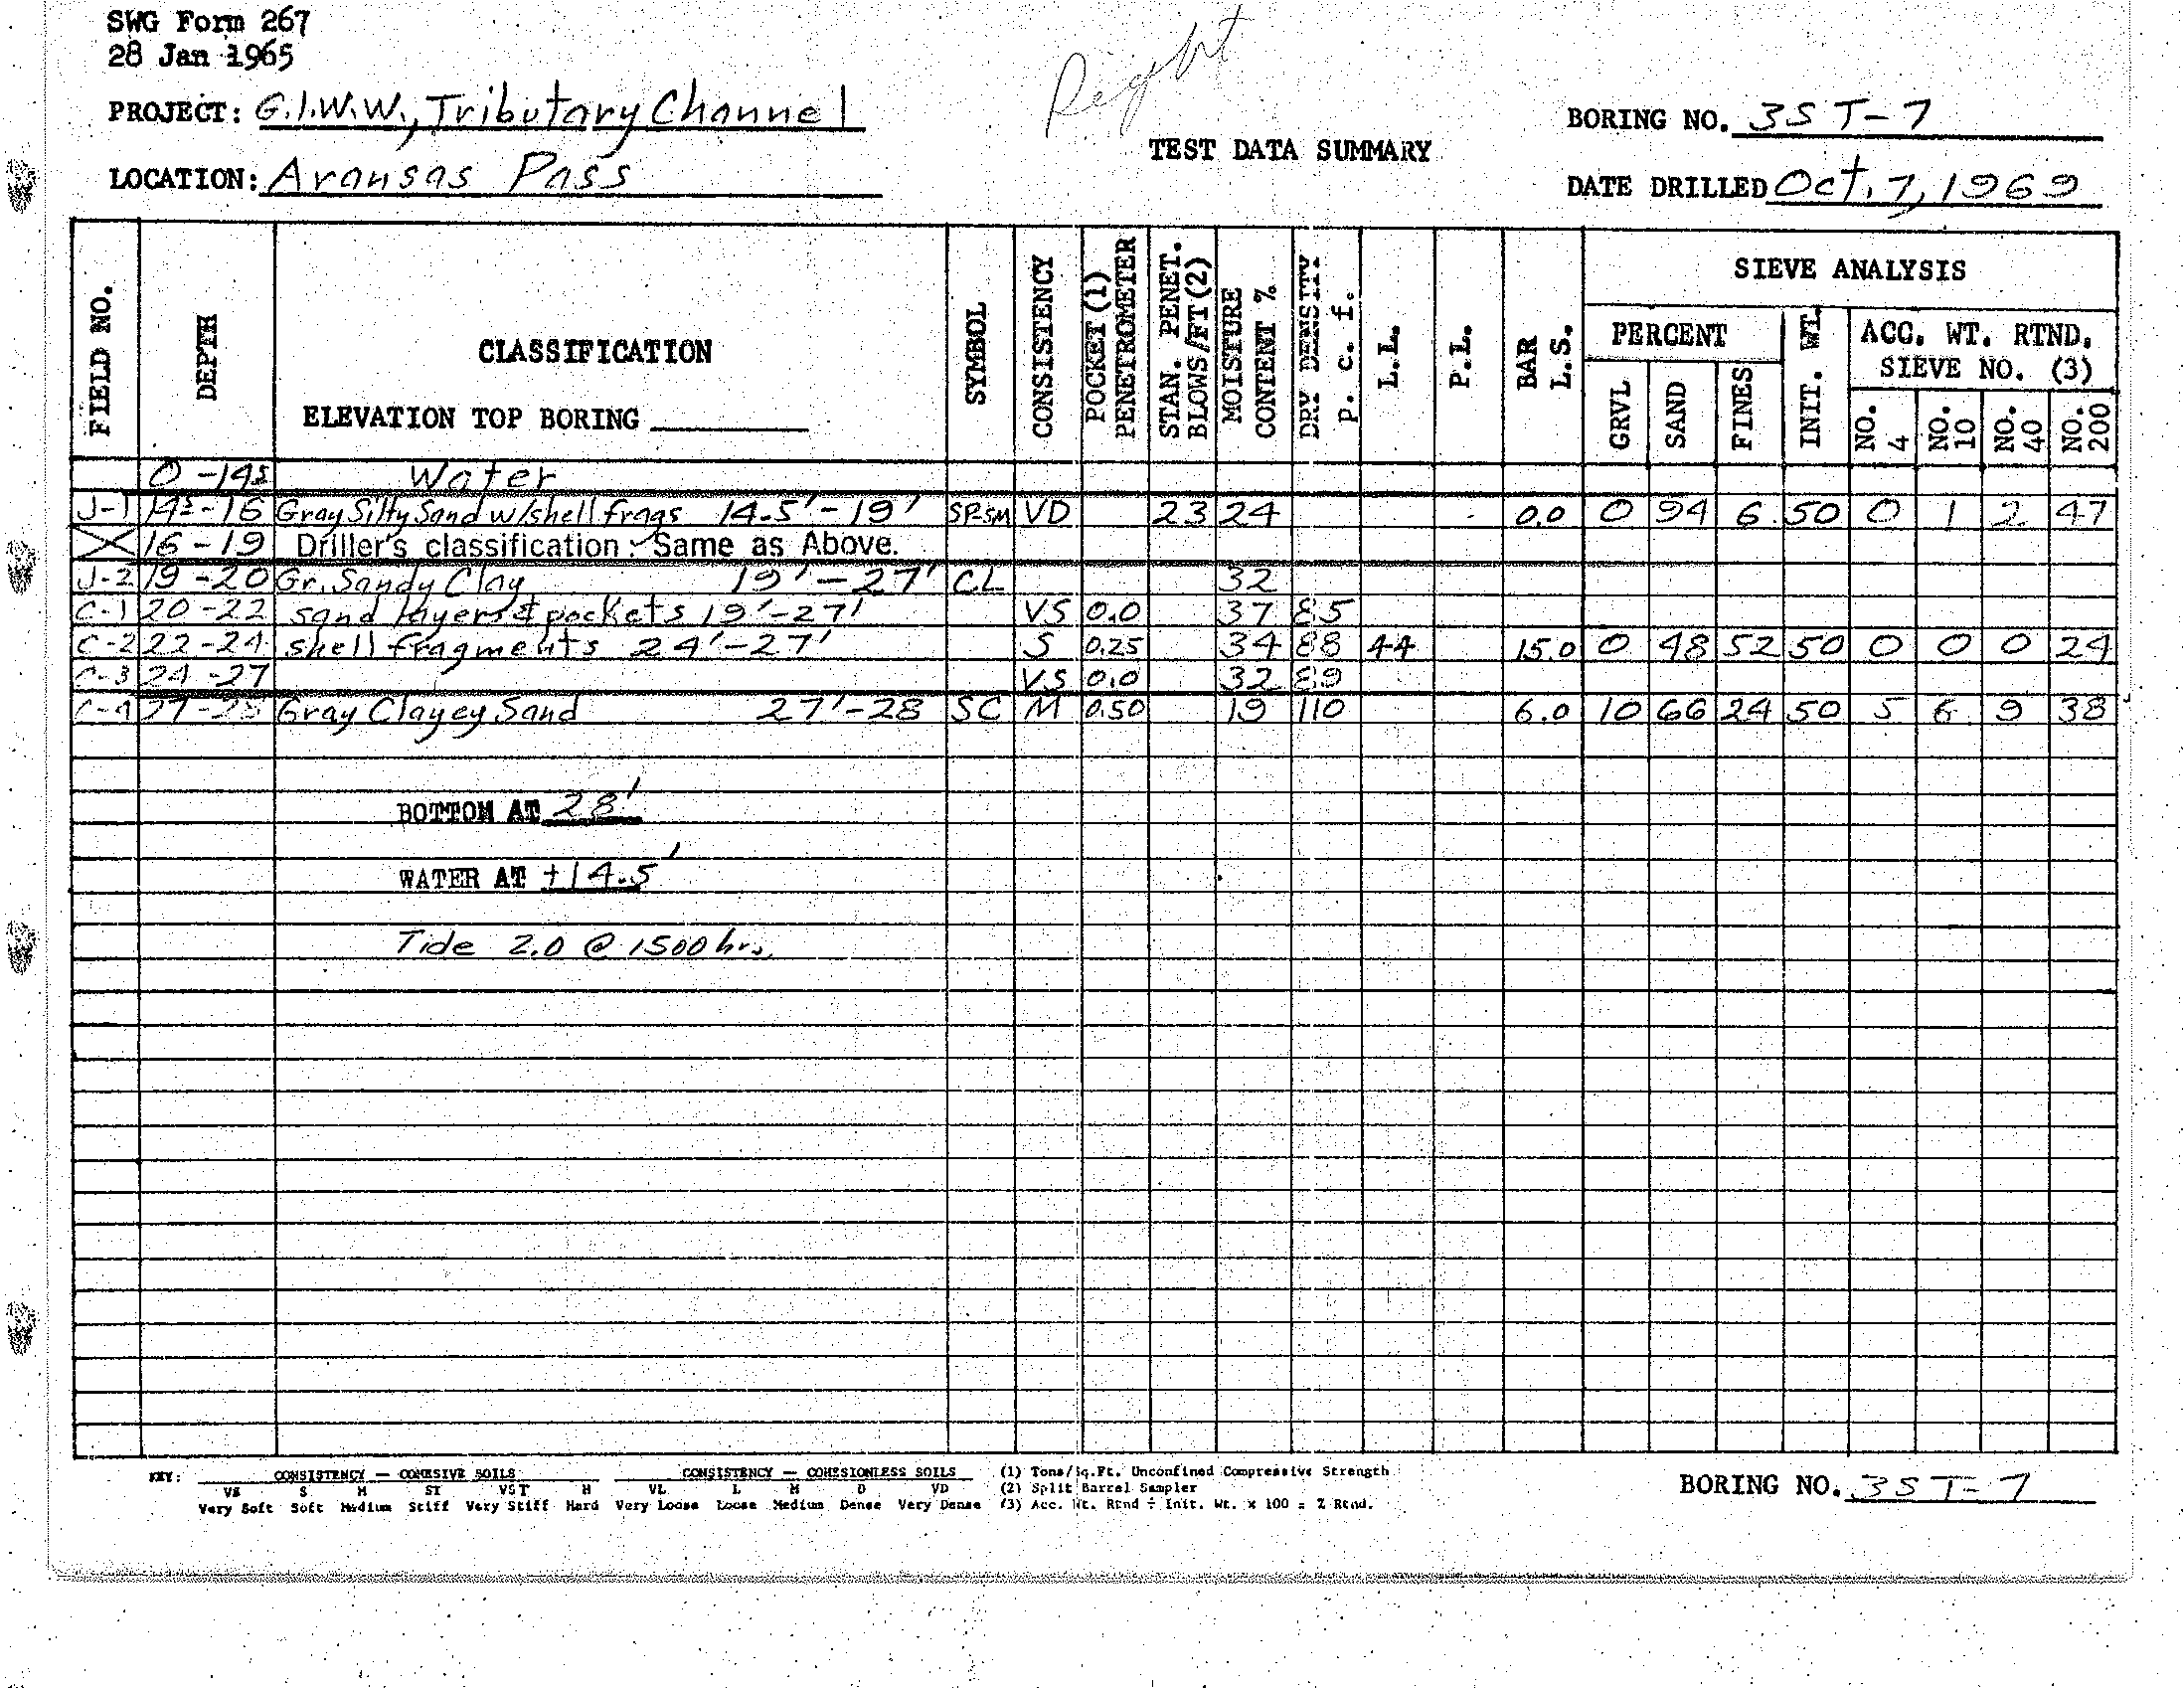 SWG Form 267
28 Jan 1965
Right
PROJECT: G.I.W.W., Tributary Channel
BORING NO. 3ST-7
TEST DATA SUMMARY
LOCATION: Aransas Pass
DATE DRILLED Oct. 7, 1969
FIELD NO.
DEPTH
CLASSIFICATION
ELEVATION TOP BORING
SYMBOL
CONSISTENCY
POCKET (1) PENETROMETER
STAN. PENET. BLOWS/FT (2)
MOISTURE CONTENT %
DRY DENSITY P. c. f.
L.L.
P.L.
BAR L.S.
SIEVE ANALYSIS
PERCENT
GRVL
SAND
FINES
INIT. WT.
ACC. WT. RTND.
SIEVE NO. (3)
NO. 4
NO. 10
NO. 40
NO. 200
0-14.5 Water
J-1 14.5-16 Gray Silty Sand w/shell frags 14.5'-19' SP-SM VD 23 24 0.0 0 94 6 50 0 1 2 47
16-19 Driller's classification: Same as Above.
J-2 19-20 Gr. Sandy Clay 19'-27' CL 32
C-1 20-22 sand layers & pockets 19'-27' VS 0.0 37 85
C-2 22-24 shell fragments 24'-27' S 0.25 34 88 44 15.0 0 48 52 50 0 0 0 24
C-3 24-27 VS 0.0 32 89
C-4 27-28 Gray Clayey Sand 27'-28 SC M 0.50 19 110 6.0 10 66 24 50 5 6 9 38
BOTTOM AT 28'
WATER AT +14.5'
Tide 2.0 @ 1500 hrs.
KEY: CONSISTENCY — COHESIVE SOILS CONSISTENCY — COHESIONLESS SOILS (1) Tons/Sq.Ft. Unconfined Compressive Strength
VS S M ST VST H VL L M D VD (2) Split Barrel Sampler
Very Soft Soft Medium Stiff Very Stiff Hard Very Loose Loose Medium Dense Very Dense (3) Acc. Wt. Rtnd ÷ Init. Wt. x 100 = % Rtnd.
BORING NO. 3ST-7